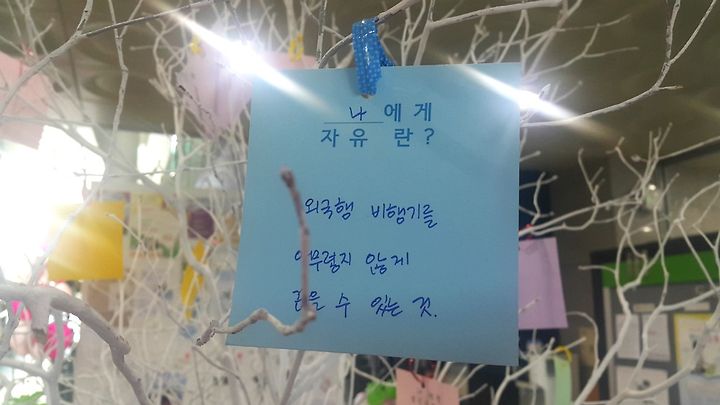 나에게
자유란?
외국행 비행기를
아무렇지 않게
끊을 수 있는 것.